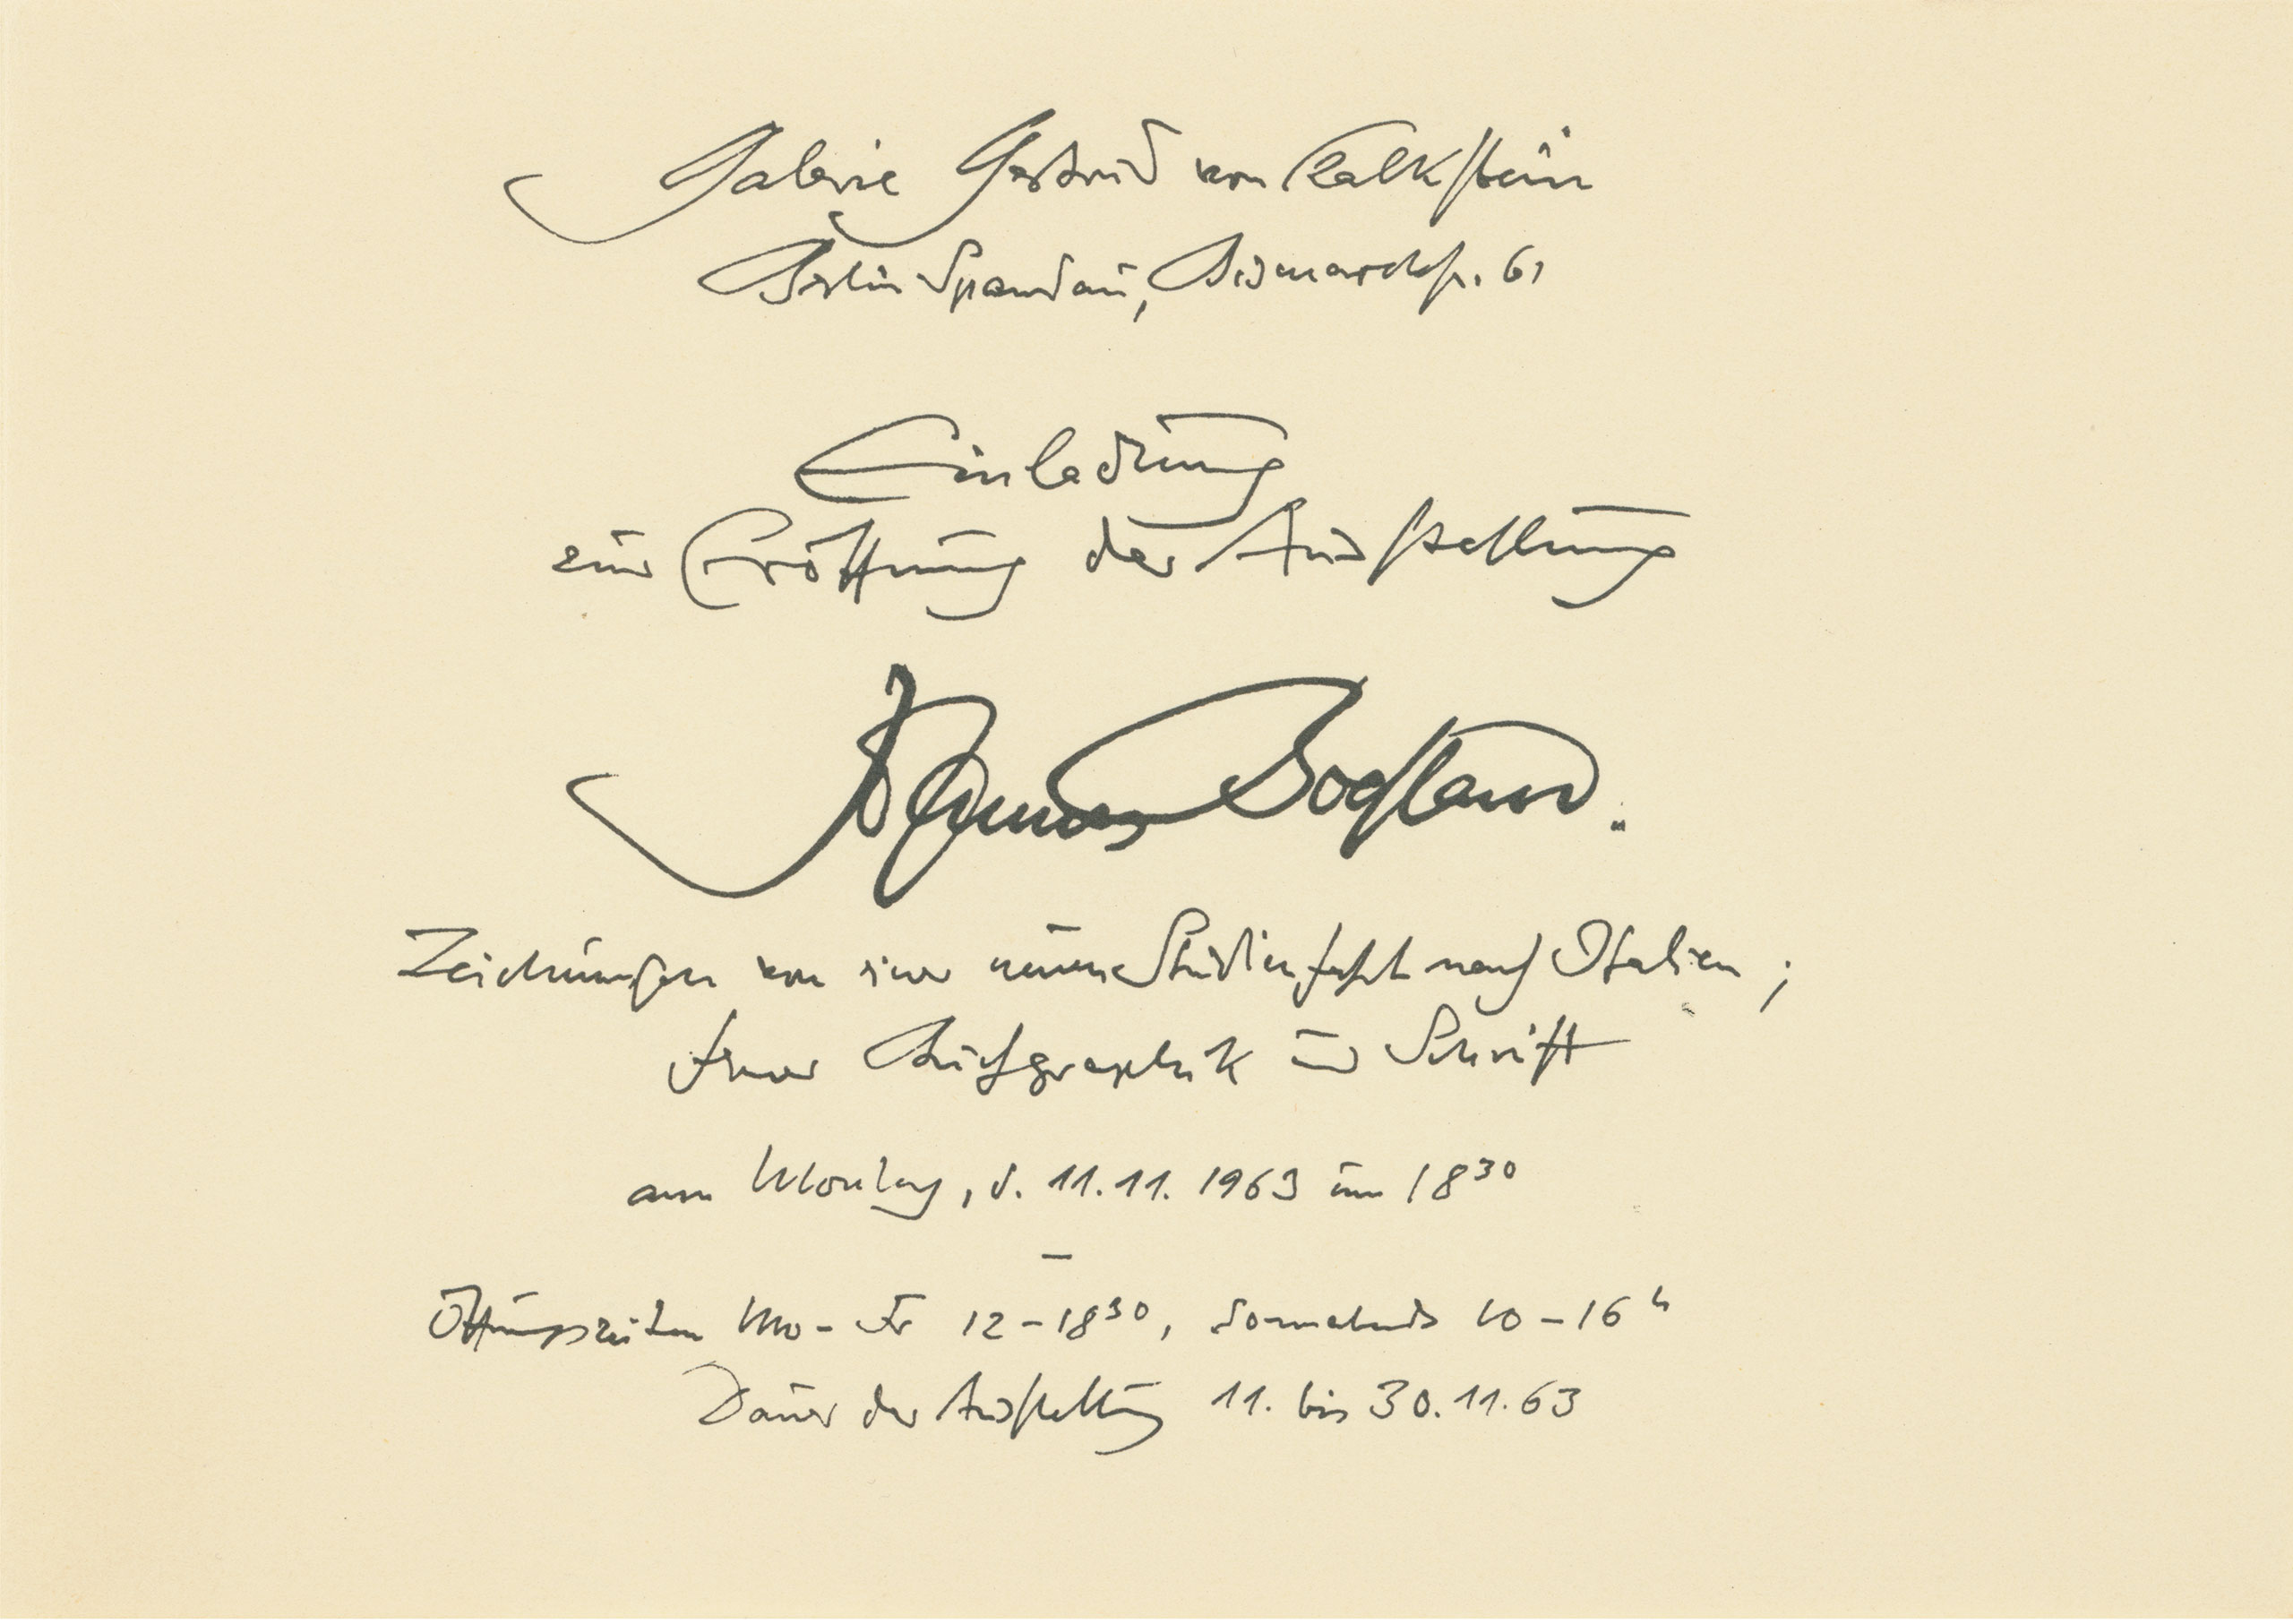 Galerie Gertrud von Kalkstein
Berlin Spandau, Bismarckstr. 61
Einladung
zur Eröffnung der Ausstellung
Johannes Boehland.
Zeichnungen von einer neuen Studienfahrt nach Italien;
ferner Buchgraphik und Schrift
am Montag, d. 11.11.1963 um 18³⁰
–
Öffnungszeiten Mo – Fr 12 – 18³⁰, Sonnabends 10 – 16ʰ
Dauer der Ausstellung 11. bis 30.11.63